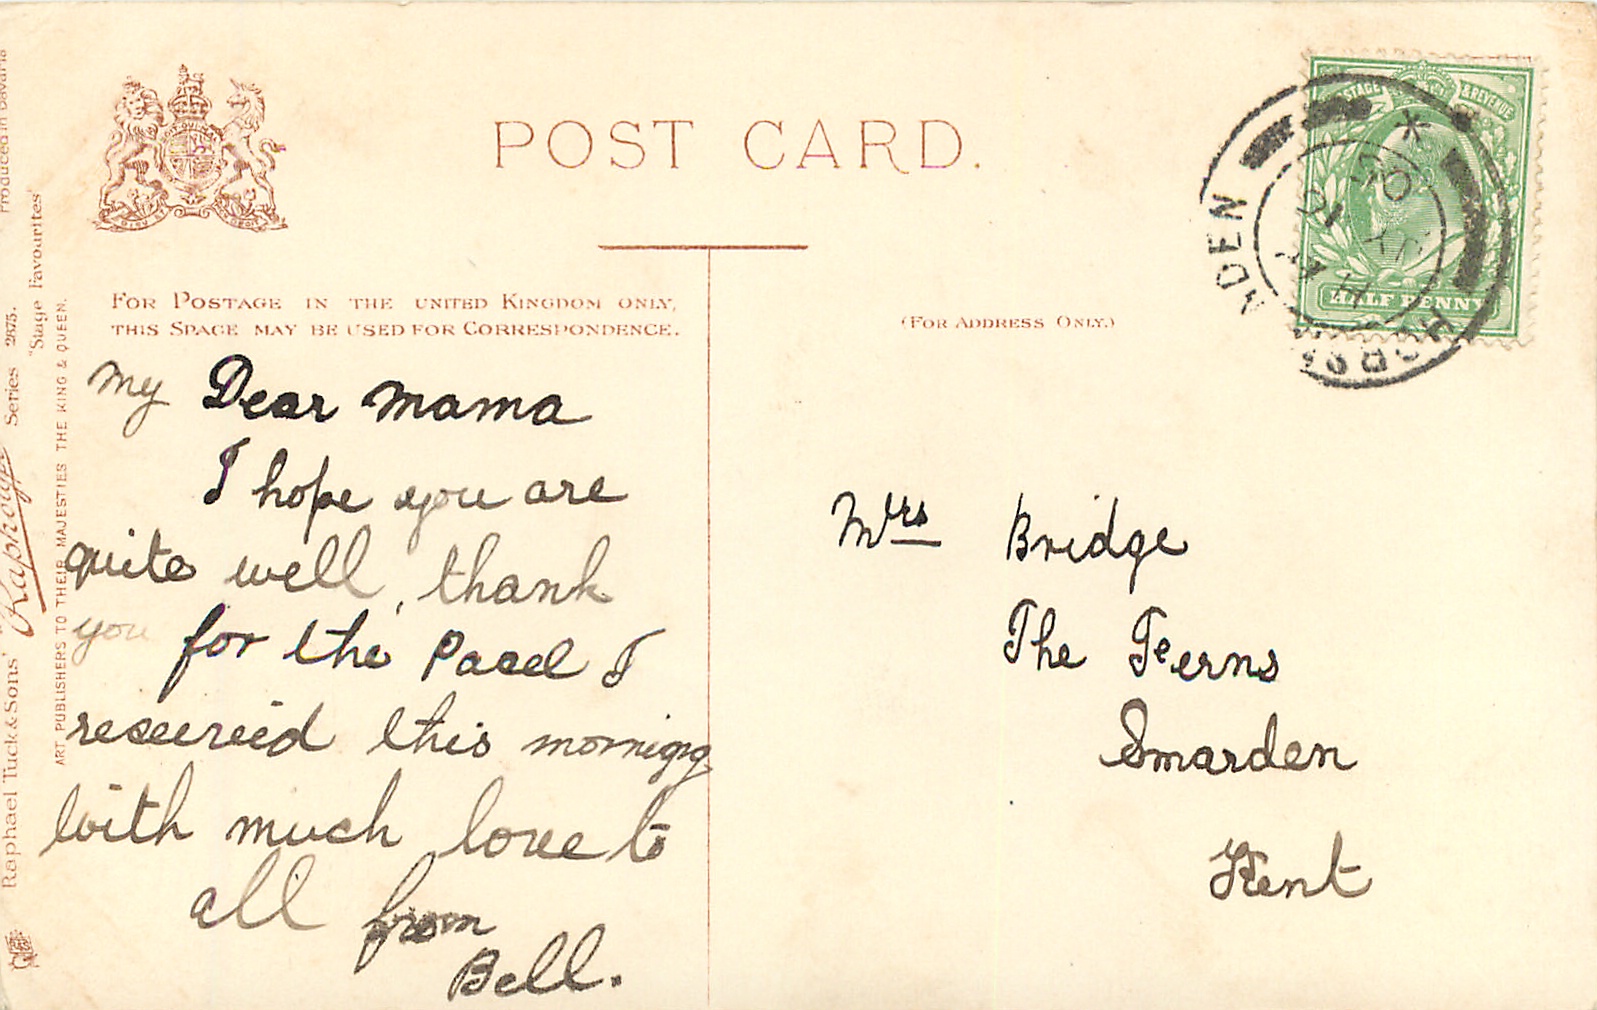 POST CARD.
FOR POSTAGE IN THE UNITED KINGDOM ONLY,
THIS SPACE MAY BE USED FOR CORRESPONDENCE.
(FOR ADDRESS ONLY.)
My Dear Mama
I hope you are
quite well, thank
you for the Pacel I
reseeried this morning
with much love to
all from
Bell.
Mrs Bridge
The Feerns
Smarden
Kent
POSTAGE & REVENUE
HALF PENNY
HORSMONDEN
Produced in Bavaria
Raphael Tuck & Sons' "Raphotype" Series 2875.
"Stage Favourites"
ART PUBLISHERS TO THEIR MAJESTIES THE KING & QUEEN.